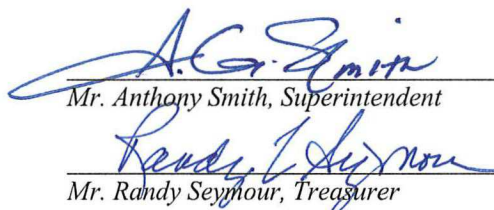 A. G. Smith
Mr. Anthony Smith, Superintendent
Randy L Seymour
Mr. Randy Seymour, Treasurer